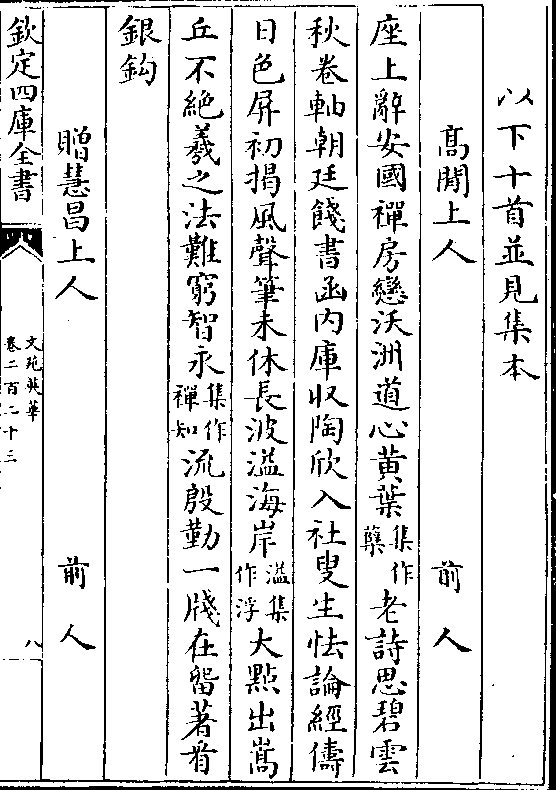 以下十首並見集本
高閑上人 前人
座上辭安國禪房戀沃洲道心黃葉集作蘗老詩思碧雲
秋卷軸朝廷餞書函內庫収陶欣入社叟生怯論經儔
日色屏初揭風聲筆未休長波溢海岸溢集作浮大點出嵩
丘不絶羲之法難窮智永集作禪知流殷勤一牋在留著看
銀鈎
贈慧昌上人 前人
欽定四庫全書
文苑英華
卷二百二十三
八